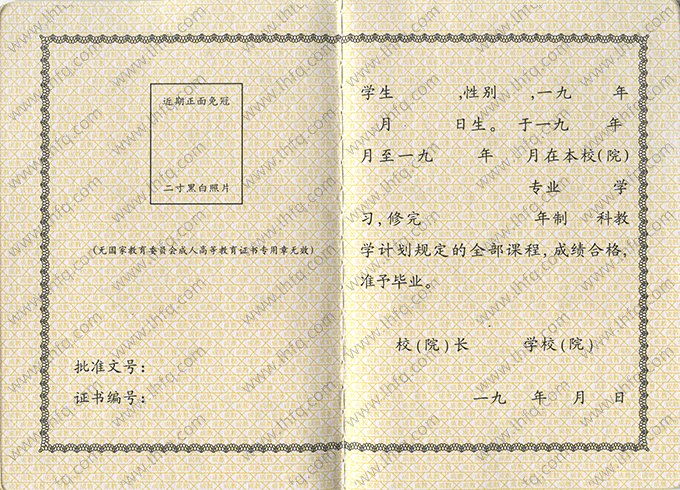 近期正面免冠
二寸黑白照片
(无国家教育委员会成人高等教育证书专用章无效)
批准文号:
证书编号:
学生 ,性别 ,一九 年
月 日生。 于一九 年
月至一九 年 月在本校(院)
专业 学
习,修完 年制 科教
学计划规定的全部课程,成绩合格,
准予毕业。
校(院)长 学校(院)
一九 年 月 日
www.lhfq.com